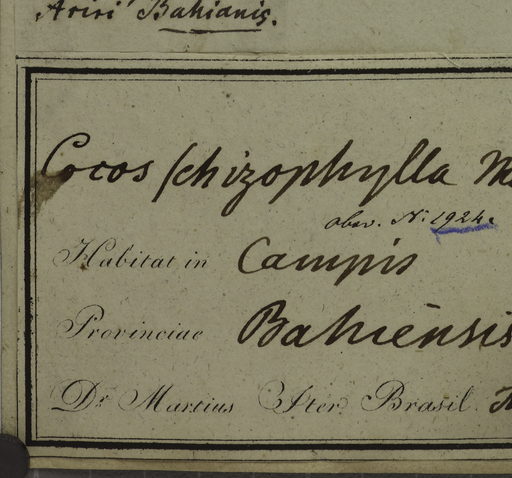 Ariri Bahianis.
Cocos schizophylla
obsv. N: 1924.
Habitat in Campis
Provinciae Bahiensis
Dr. Martius Iter Brasil.